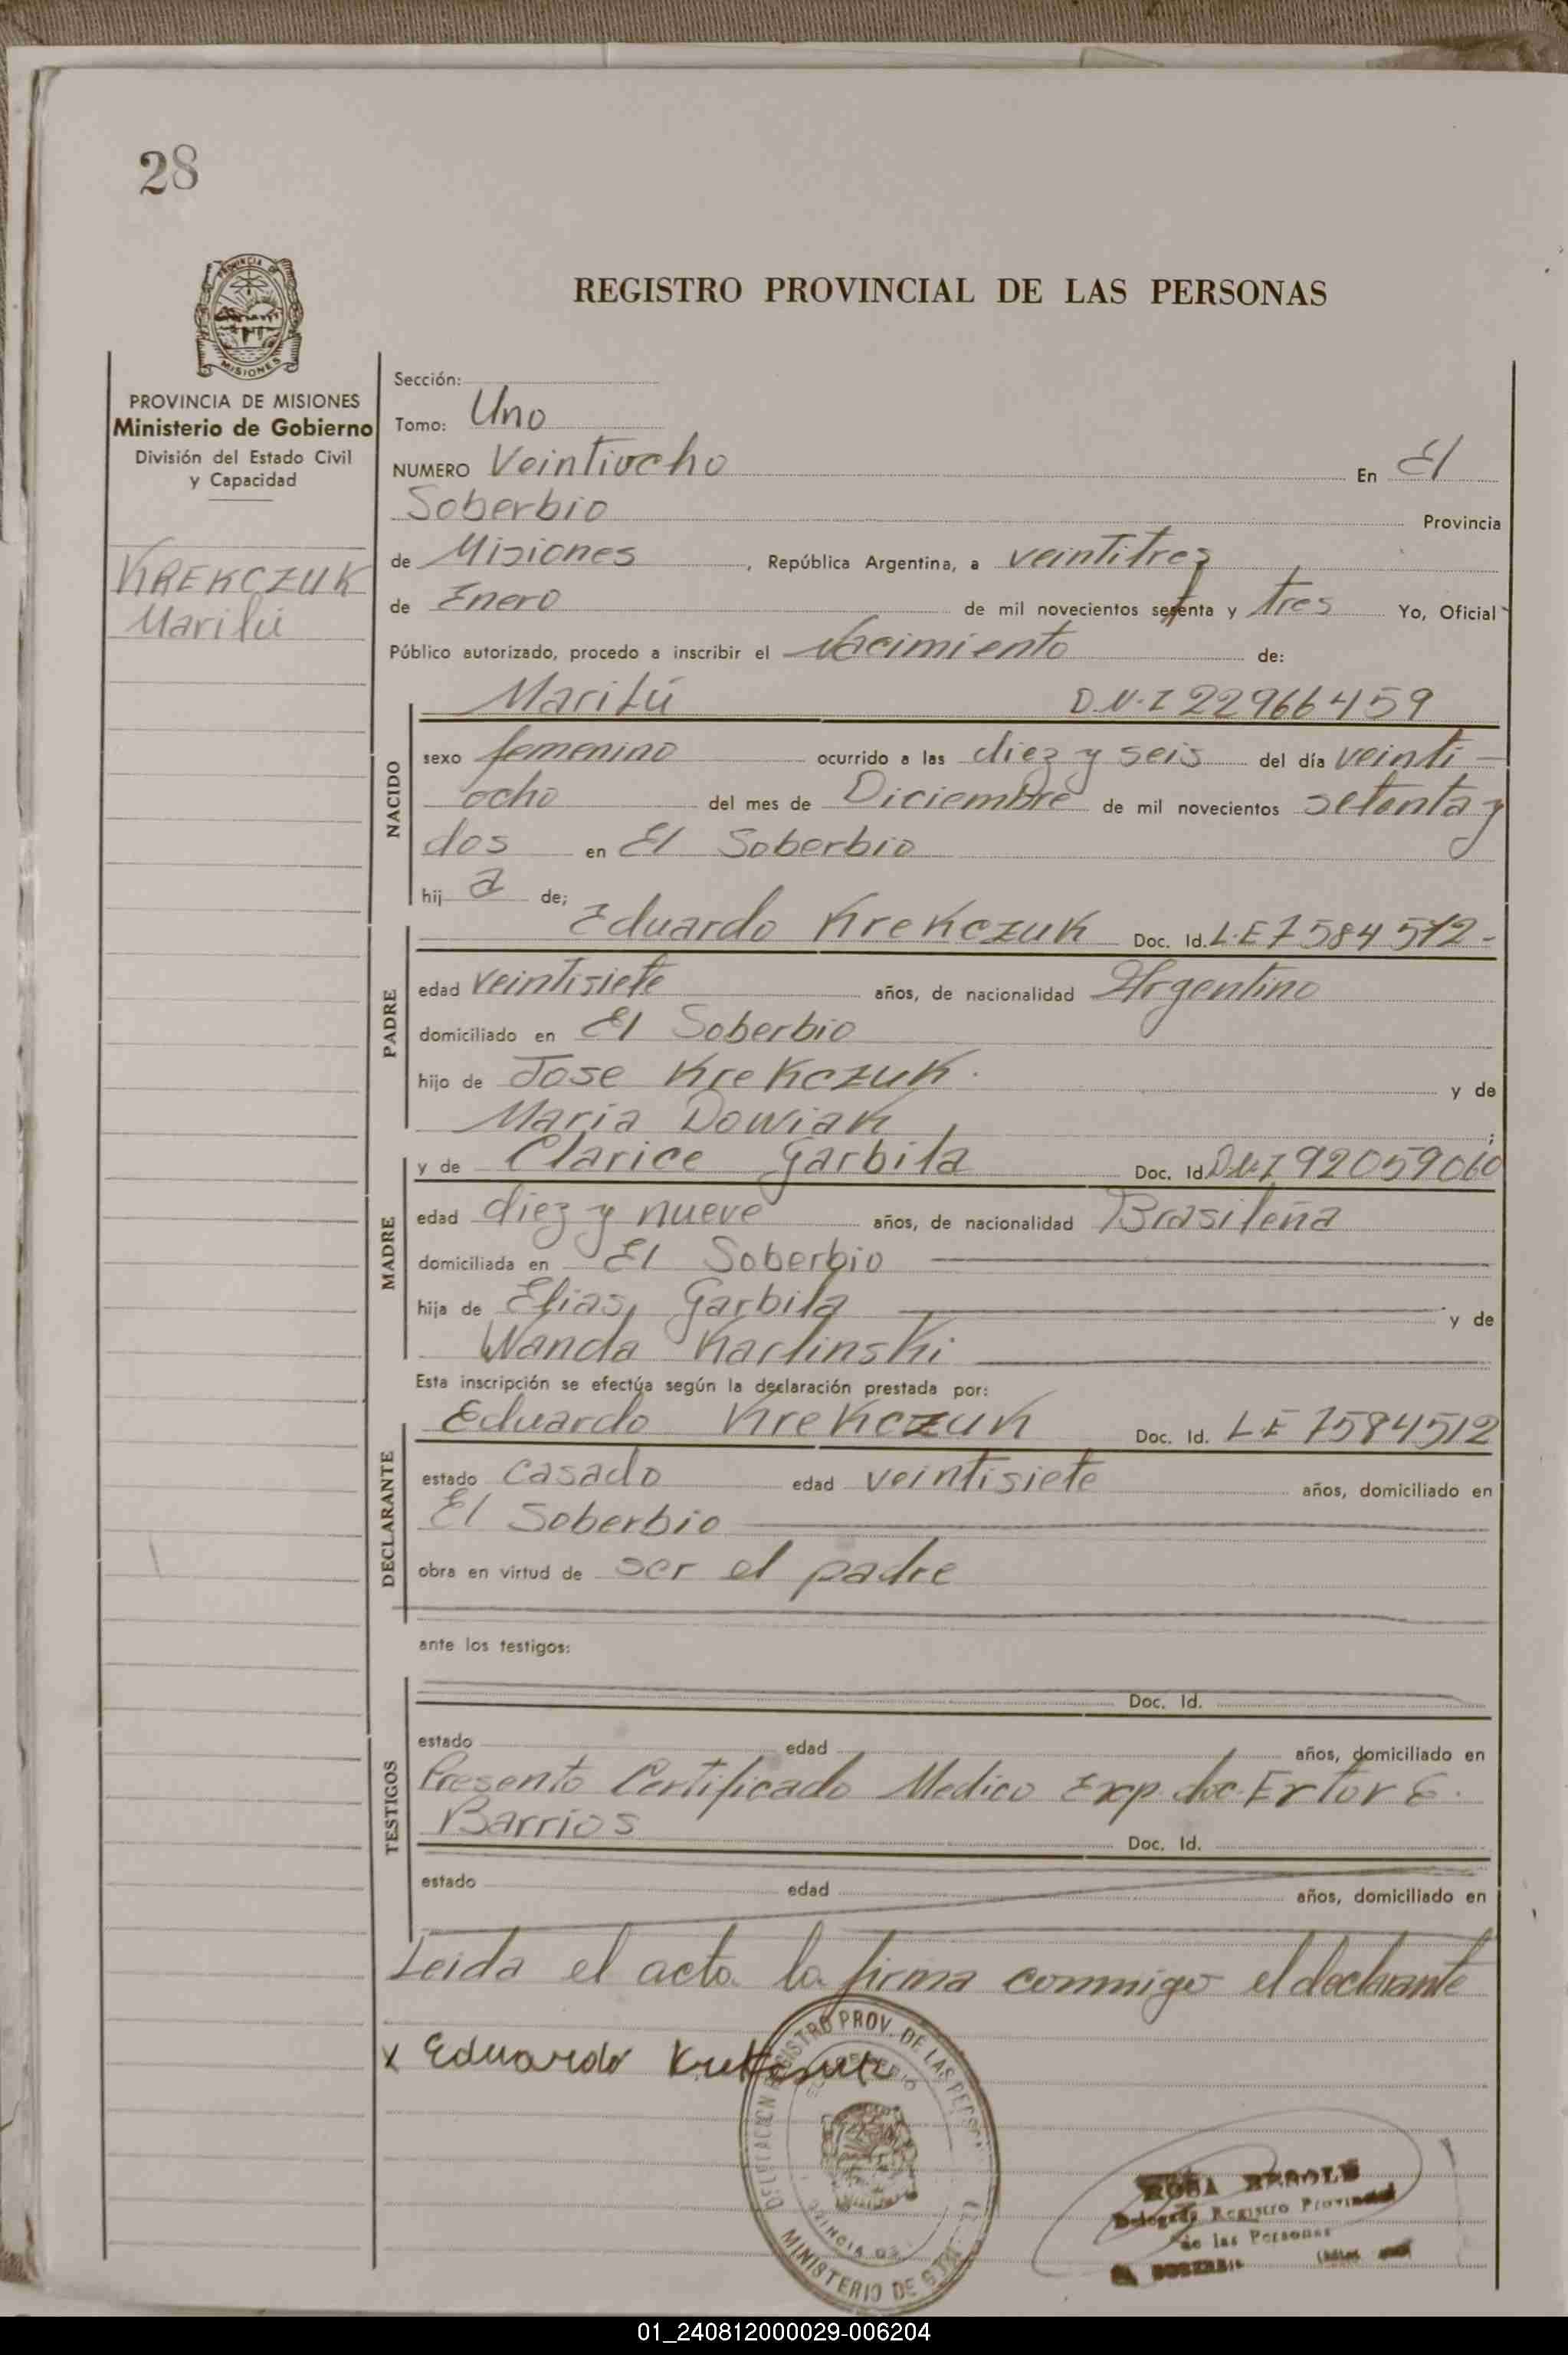 28
PROVINCIA DE
MISIONES
REGISTRO PROVINCIAL DE LAS PERSONAS
PROVINCIA DE MISIONES
Ministerio de Gobierno
División del Estado Civil
y Capacidad
KREKCZUK
Marilú
Sección:
Tomo: Uno
NUMERO Veintiocho En El
Soberbio Provincia
de Misiones, República Argentina, a veintitres
de Enero de mil novecientos setenta y tres Yo, Oficial
Público autorizado, procedo a inscribir el Nacimiento de:
NACIDO
Marilú D.N.I 22966459
sexo femenino ocurrido a las diez y seis del día veinti-
ocho del mes de Diciembre de mil novecientos setenta y
dos en El Soberbio
hij a de;
PADRE
Eduardo Krekczuk Doc. Id. L.E 7584512-
edad veintisiete años, de nacionalidad Argentino
domiciliado en El Soberbio
hijo de Jose Krekczuk. y de
Maria Dowiak ;
MADRE
y de Clarice Garbila Doc. Id. D.N.I 92059060
edad diez y nueve años, de nacionalidad Brasileña
domiciliada en El Soberbio
hija de Elias Garbila y de
Wanda Karlinski
Esta inscripción se efectúa según la declaración prestada por:
DECLARANTE
Eduardo Krekczuk Doc. Id. L.E 7584512
estado casado edad veintisiete años, domiciliado en
El Soberbio
obra en virtud de ser el padre
ante los testigos:
TESTIGOS
Doc. Id.
estado edad años, domiciliado en
Presento Certificado Medico Exp. doc. Ertor E.
Barrios Doc. Id.
estado edad años, domiciliado en
Leida el acta la firma conmigo el declarante
x Eduardo Krekczuk
DELEGACION REGISTRO PROV. DE LAS PERSO
MINISTERIO DE
ROSA
Delegada Registro Provincial
de las Personas
EL SOBERBIO
01_240812000029-006204